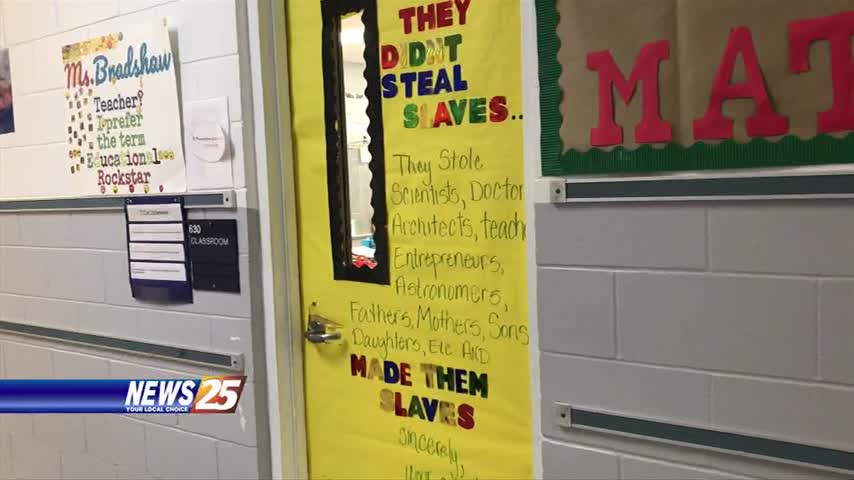 Ms. Bradshaw
Teacher?
I prefer
the term
Educational
Rockstar
630
CLASSROOM
THEY
DIDN'T
STEAL
SLAVES..
They Stole
Scientists, Doctor
Architects, teach
Entrepreneurs,
Astronomers,
Fathers, Mothers, Sons
Daughters, Etc AND
MADE THEM
SLAVES
Sincerely,
MAT
NEWS 25
YOUR LOCAL CHOICE